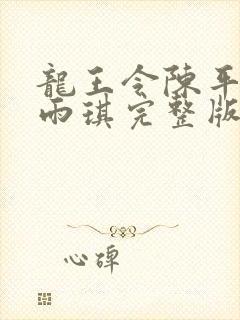 龍王令陳平
雨琪完整版
心碑